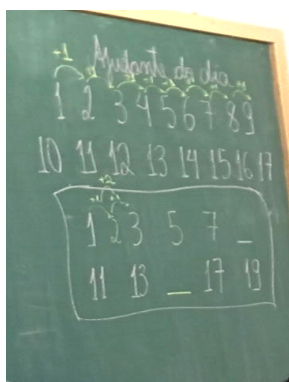 Ajudante do dia
+1
1 2 3 4 5 6 7 8 9
10 11 12 13 14 15 16 17
+2
1 2 3 5 7 _
11 13 _ 17 19